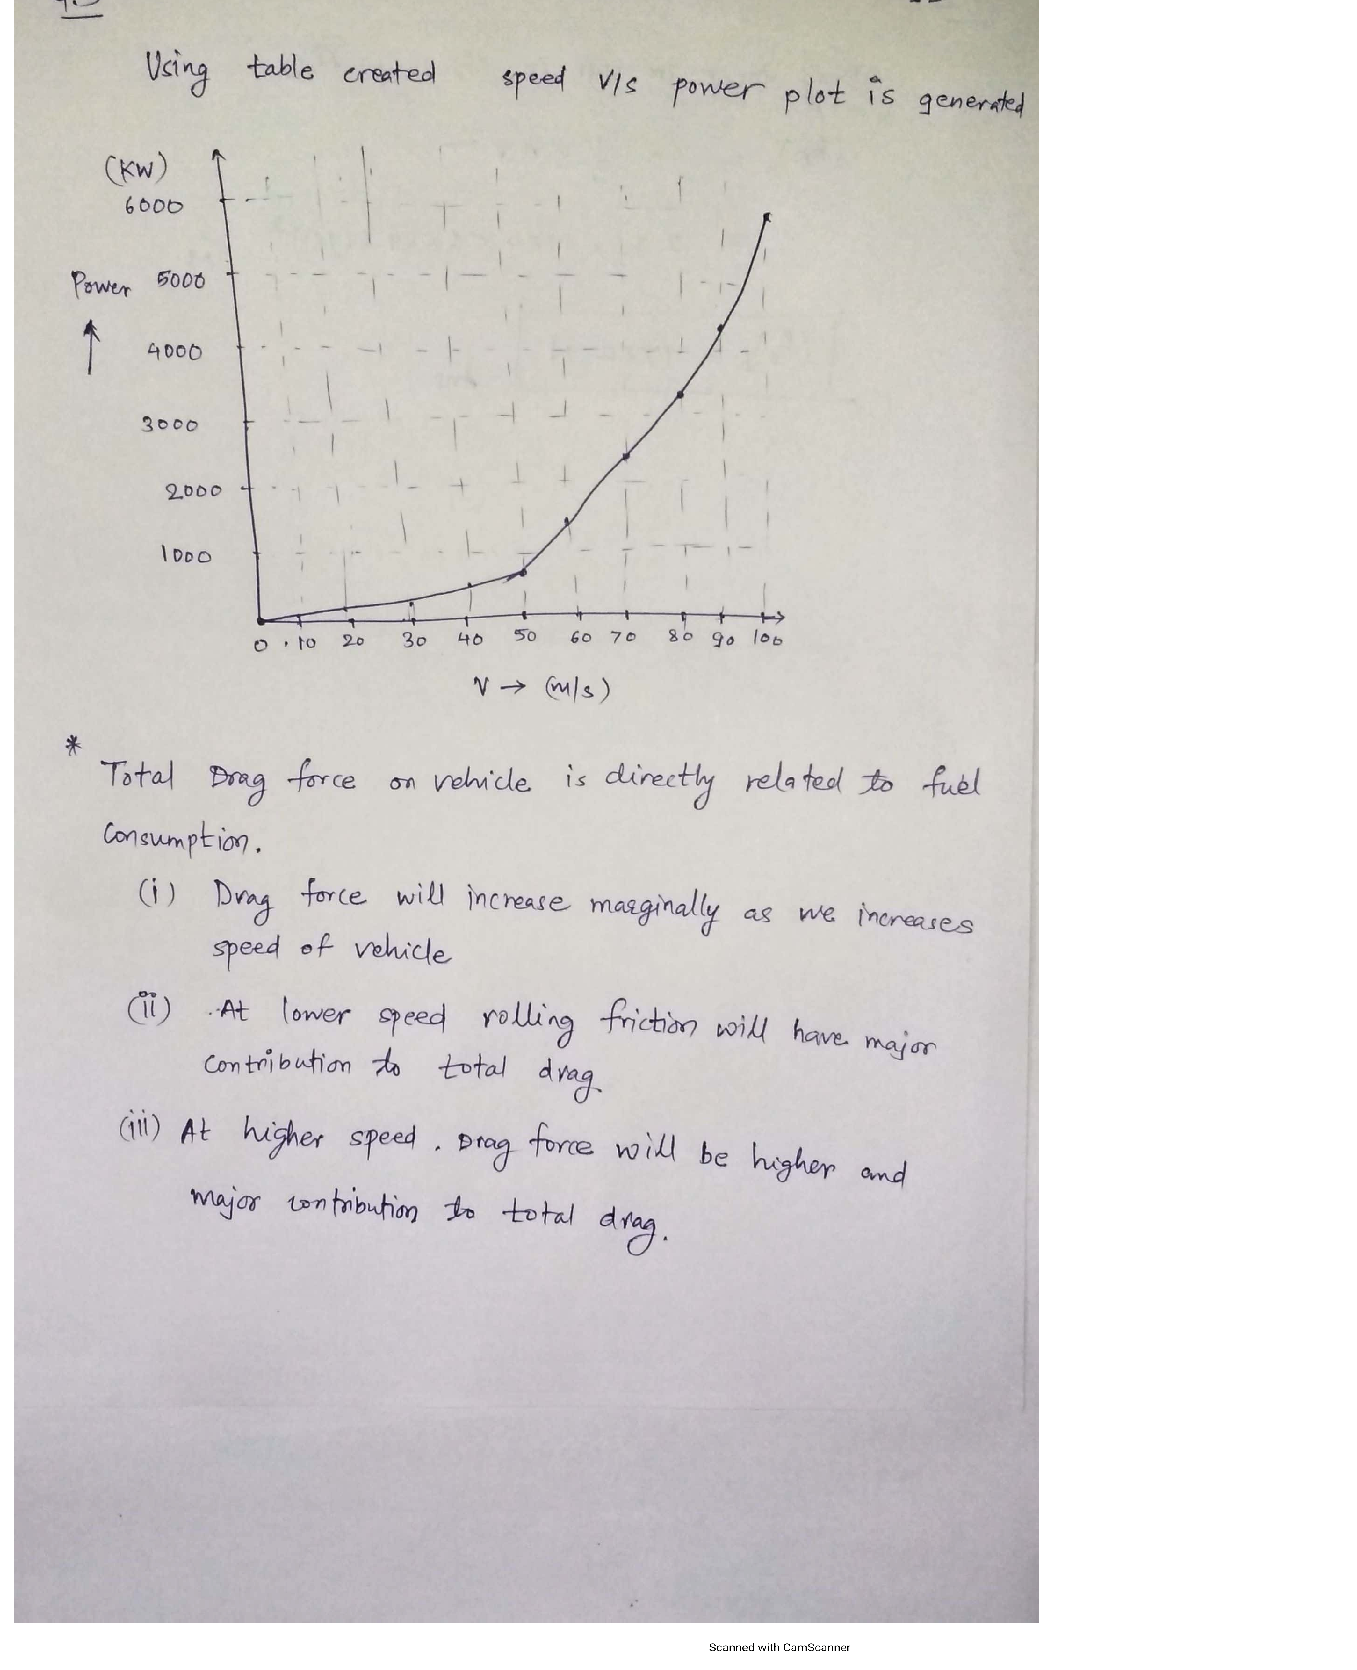 Using table created speed v/s power plot is generated
(KW)
6000
Power 5000
4000
3000
2000
1000
0 10 20 30 40 50 60 70 80 90 100
V → (m/s)
* Total Drag force on vehicle is directly related to fuel
consumption.
(i) Drag force will increase marginally as we increases
speed of vehicle
(ii) At lower speed rolling friction will have major
contribution to total drag.
(iii) At higher speed. Drag force will be higher and
major contribution to total drag.
Scanned with CamScanner